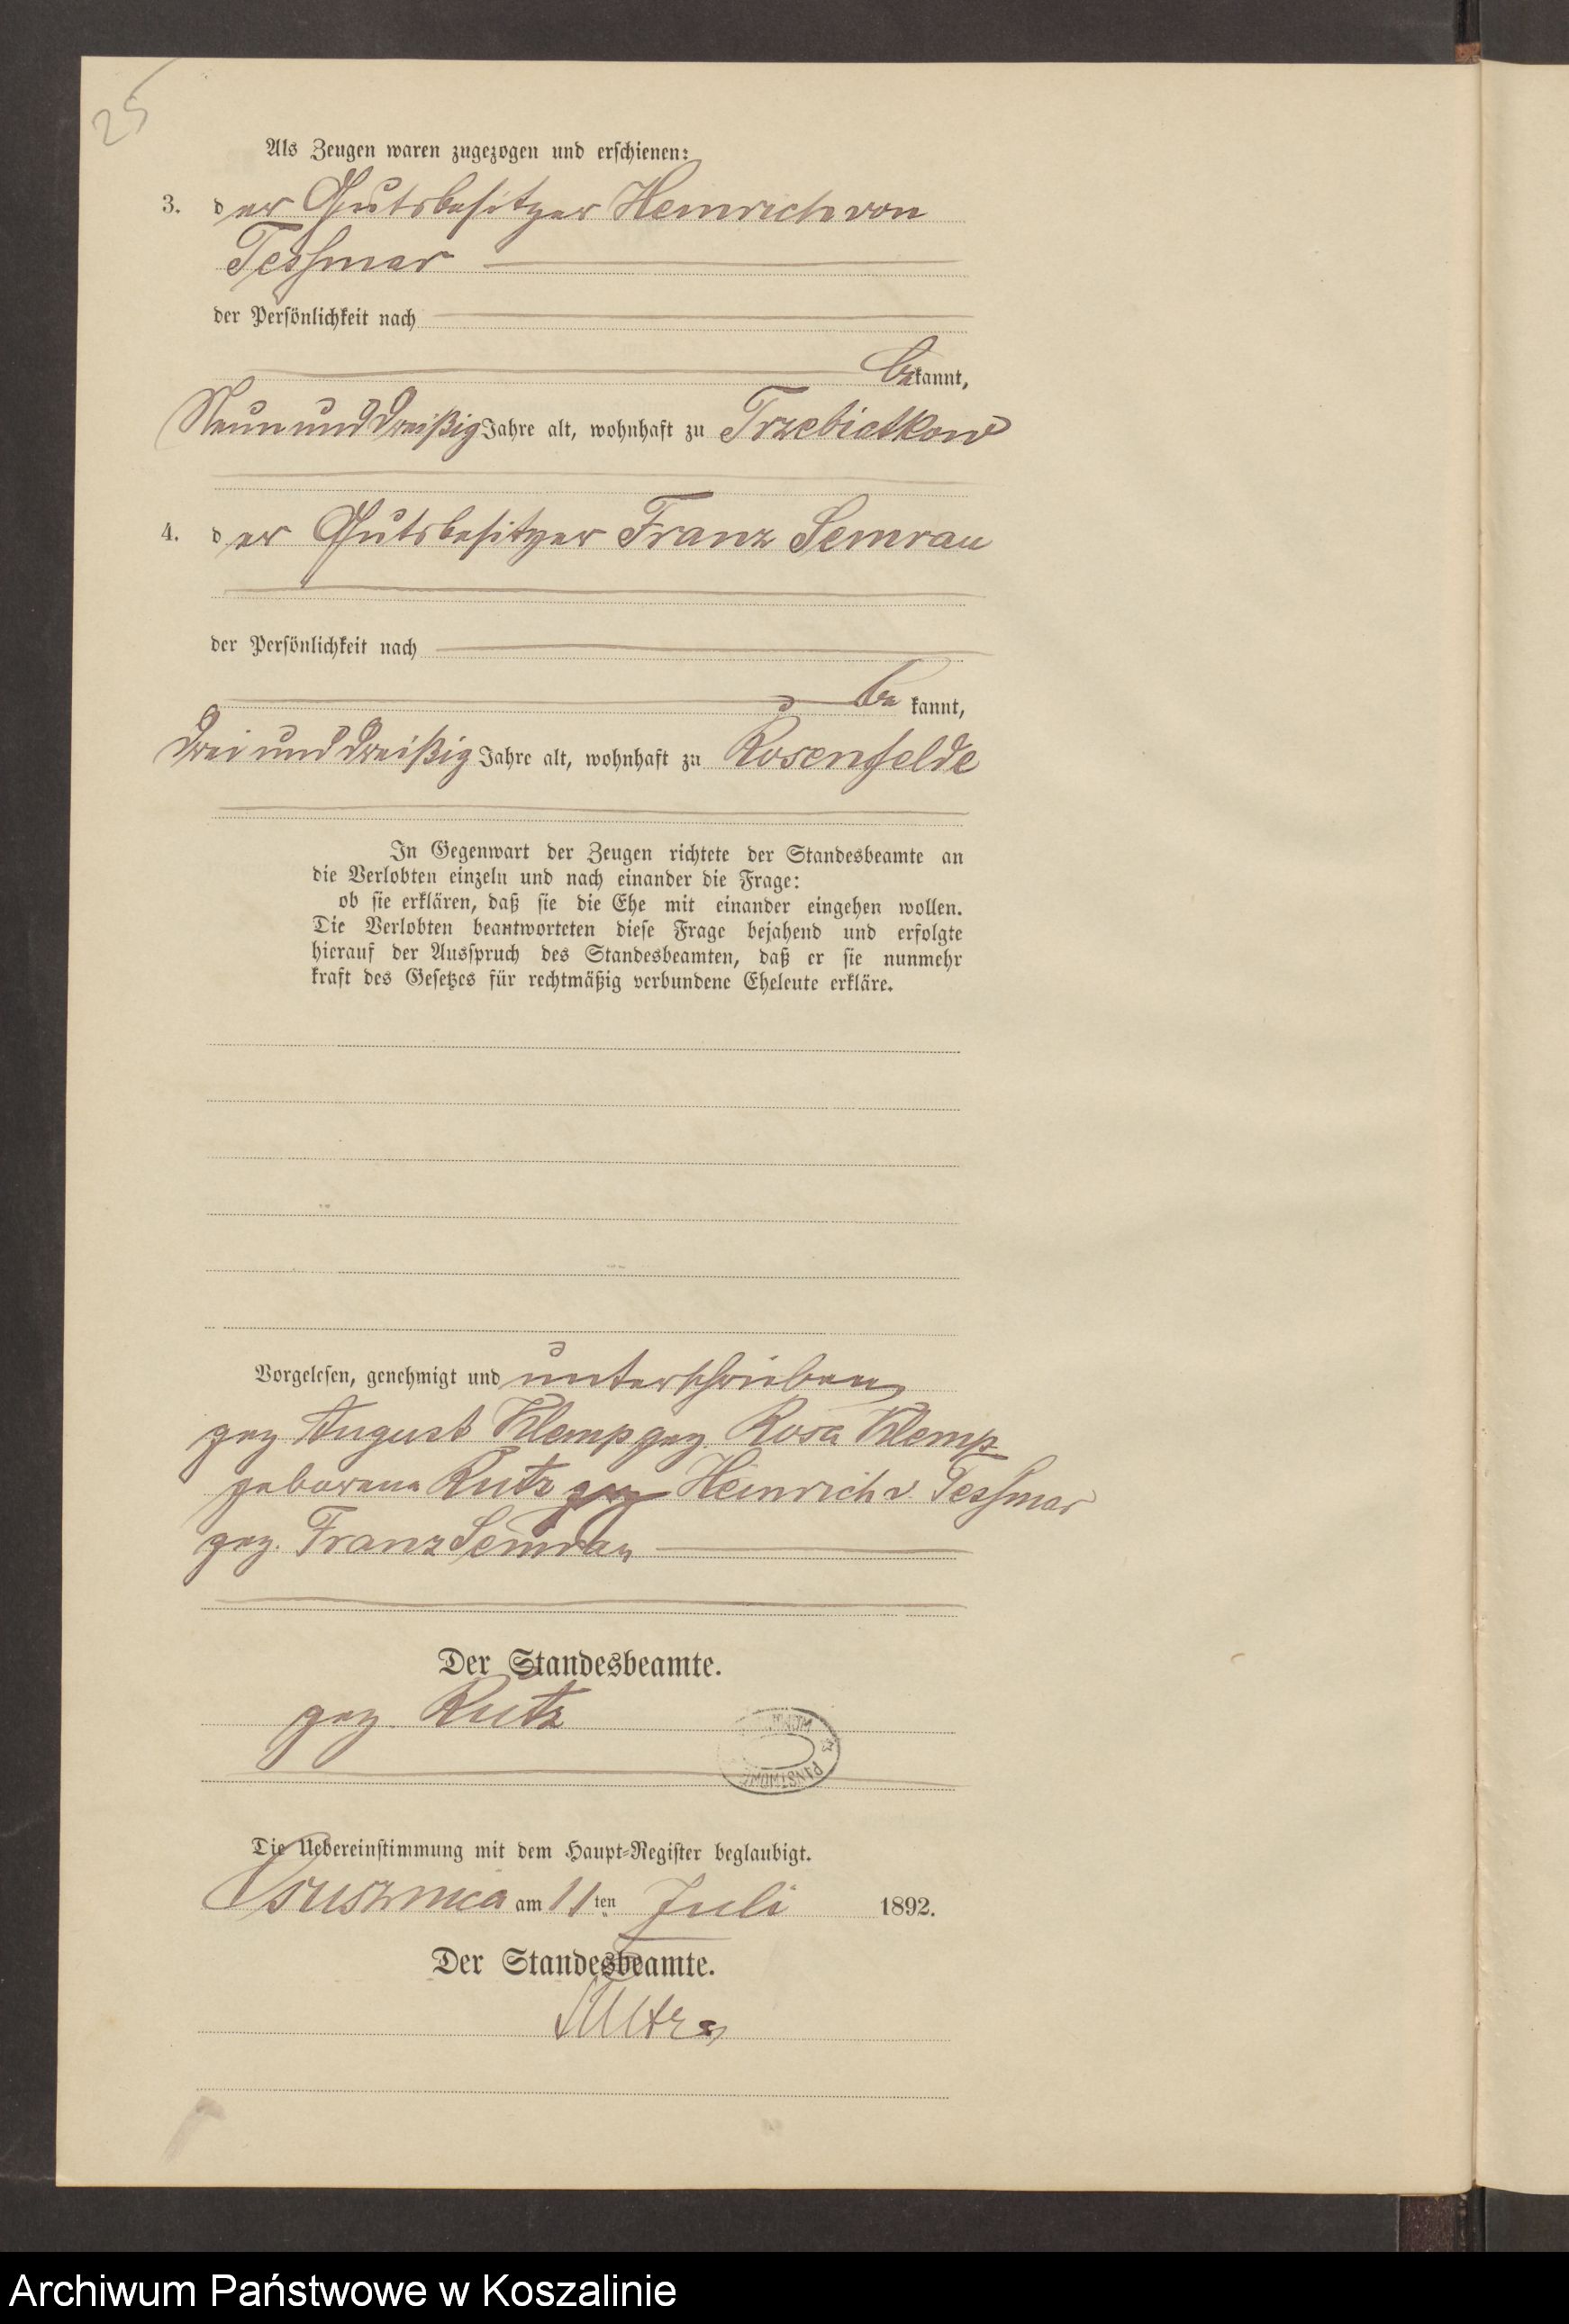 25
Als Zeugen waren zugezogen und erschienen:
3. der Gutsbesitzer Heinrich von
Tessmar
der Persönlichkeit nach
bekannt,
Neun und dreißig Jahre alt, wohnhaft zu Trzebiatkow
4. der Gutsbesitzer Franz Semrau
der Persönlichkeit nach
be kannt,
drei und dreißig Jahre alt, wohnhaft zu Rosenfelde
In Gegenwart der Zeugen richtete der Standesbeamte an
die Verlobten einzeln und nach einander die Frage:
ob sie erklären, daß sie die Ehe mit einander eingehen wollen.
Die Verlobten beantworteten diese Frage bejahend und erfolgte
hierauf der Ausspruch des Standesbeamten, daß er sie nunmehr
kraft des Gesetzes für rechtmäßig verbundene Eheleute erkläre.
Vorgelesen, genehmigt und unterschrieben
gez August Klemp gez. Rosa Klemp
geborene Rutz gez Heinrich v. Tessmar
gez. Franz Semrau
Der Standesbeamte.
gez. Rutz
Die Uebereinstimmung mit dem Haupt-Register beglaubigt.
Ossusznica am 11ten Juli 1892.
Der Standesbeamte.
Rutz
Archiwum Państwowe w Koszalinie